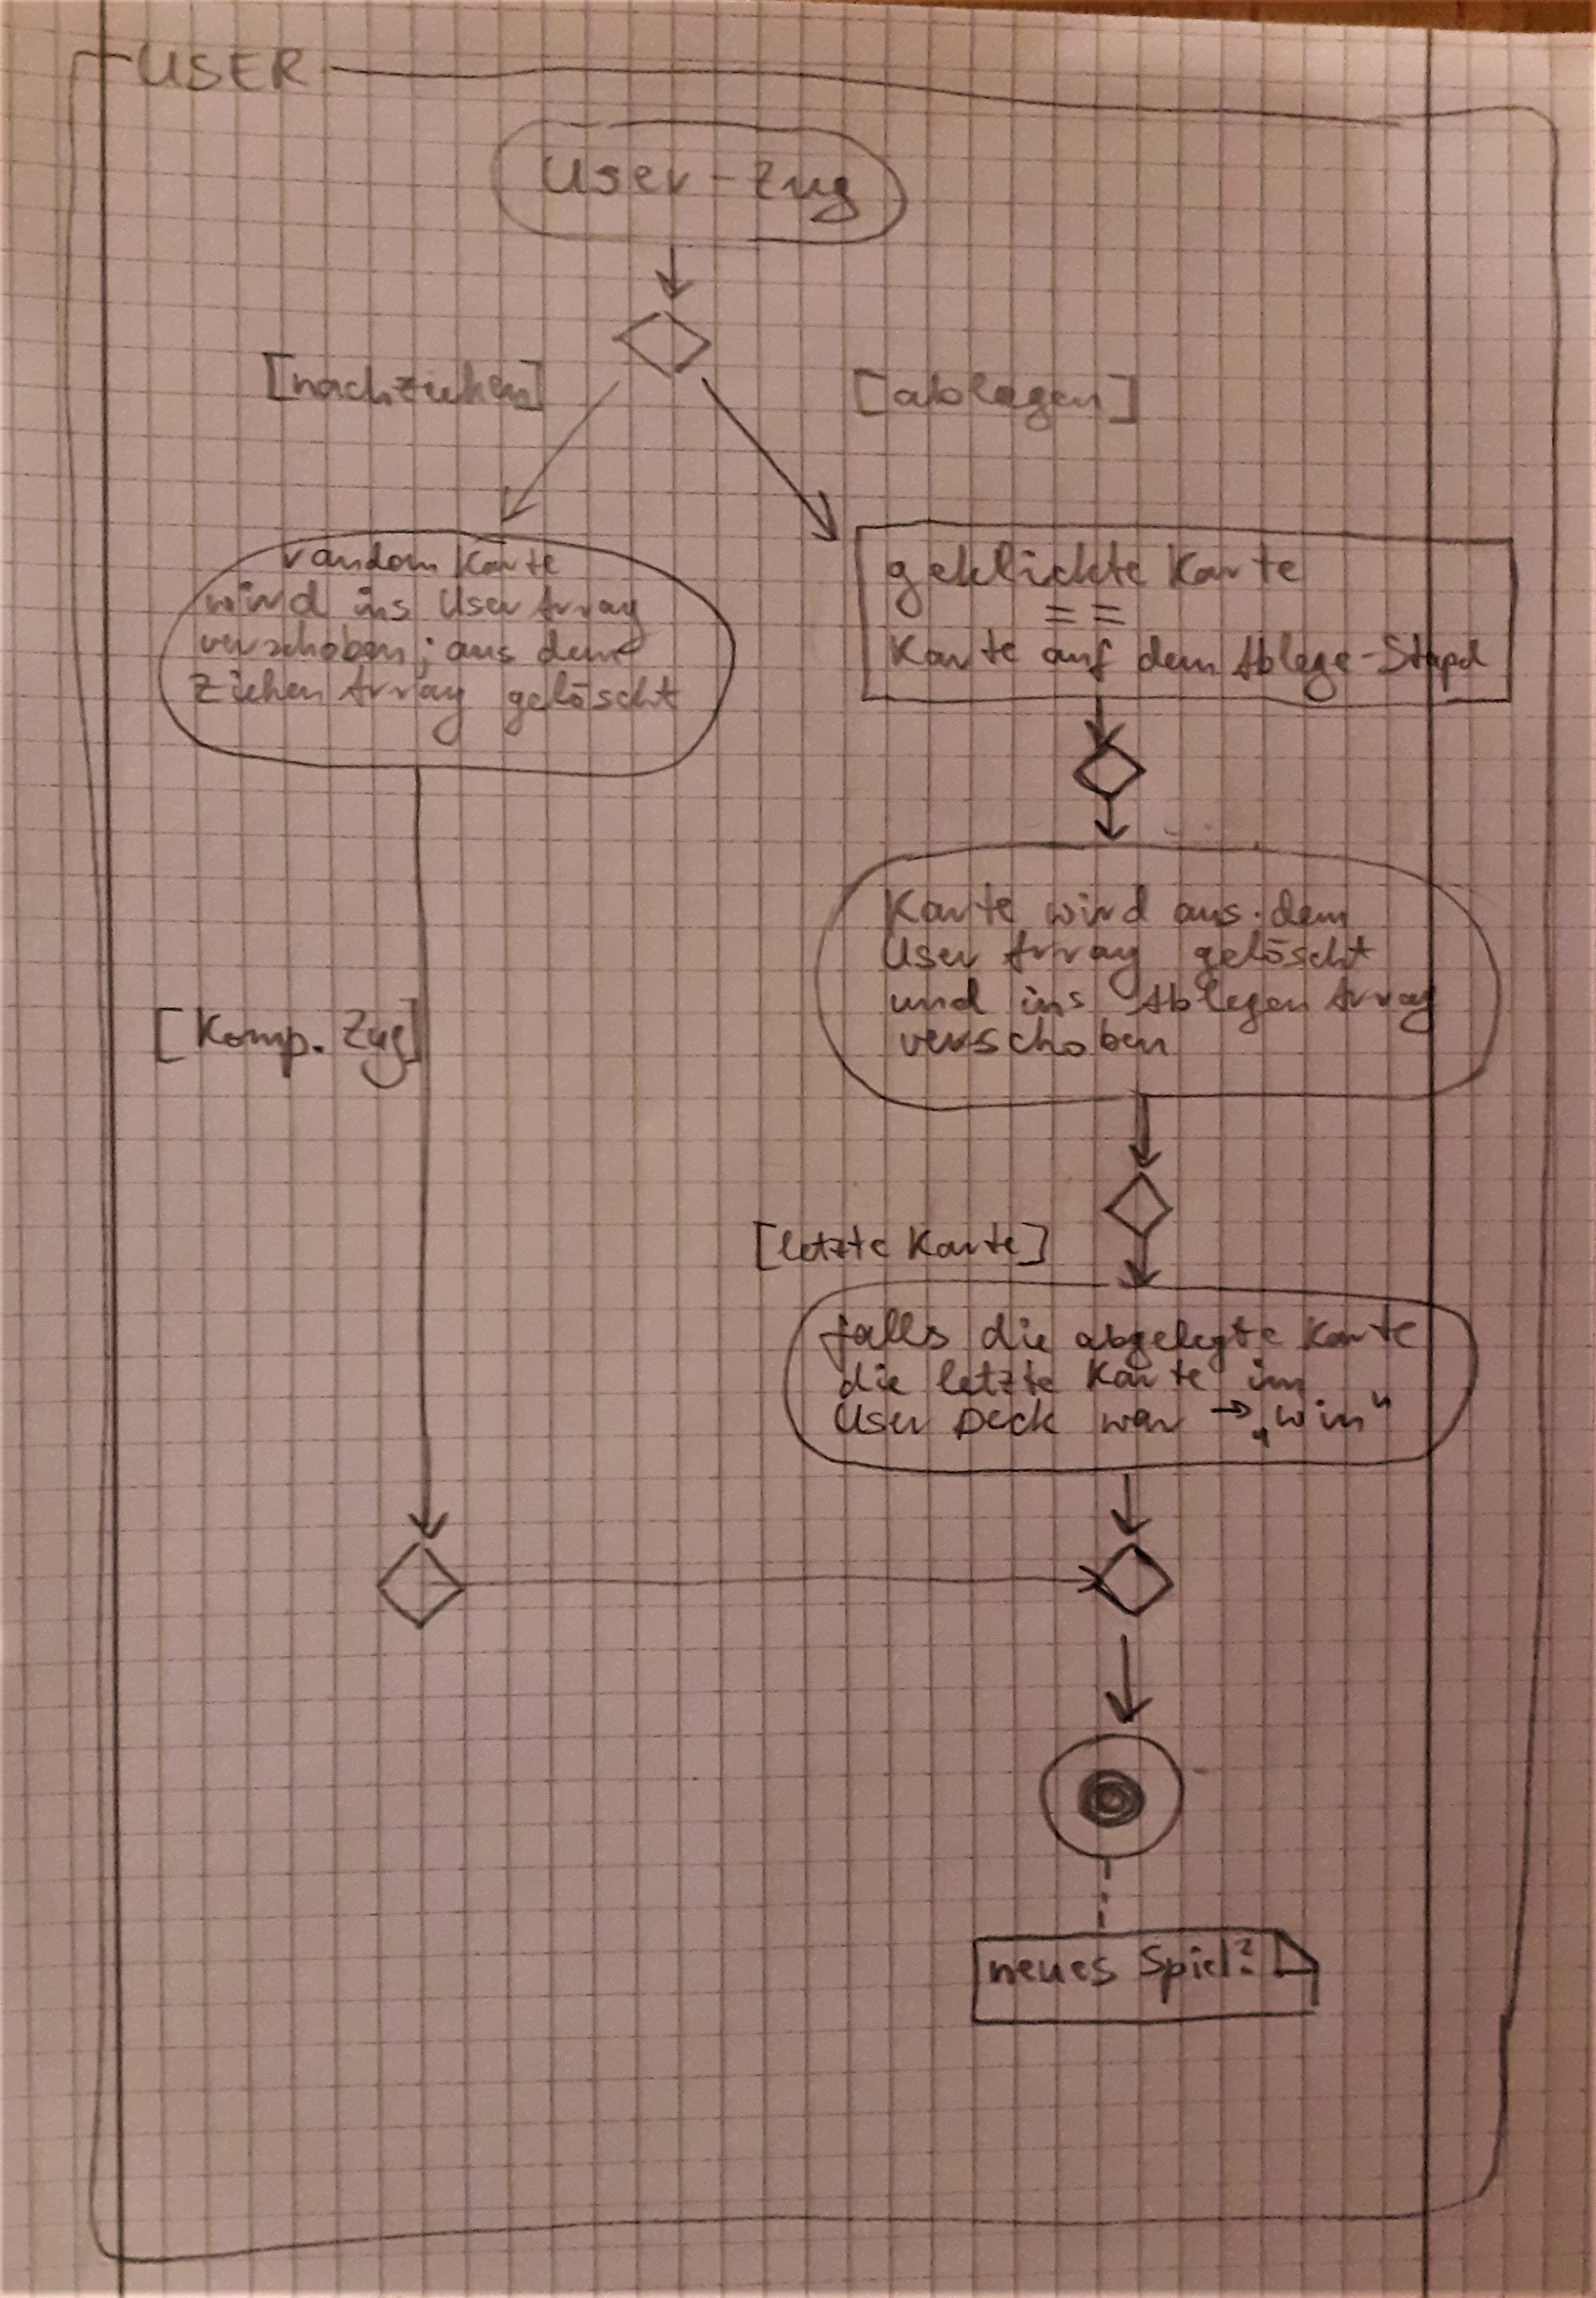 USER
User-Zug
[nachziehen]
[ablegen]
random Karte
wird ins User Array
verschoben; aus dem
Ziehen Array gelöscht
geklickte Karte
==
Karte auf dem Ablege-Stapel
Karte wird aus dem
User Array gelöscht
und ins Ablegen Array
verschoben
[Komp. Zug]
[letzte Karte]
falls die abgelegte Karte
die letzte Karte im
User Deck war → „win"
neues Spiel?